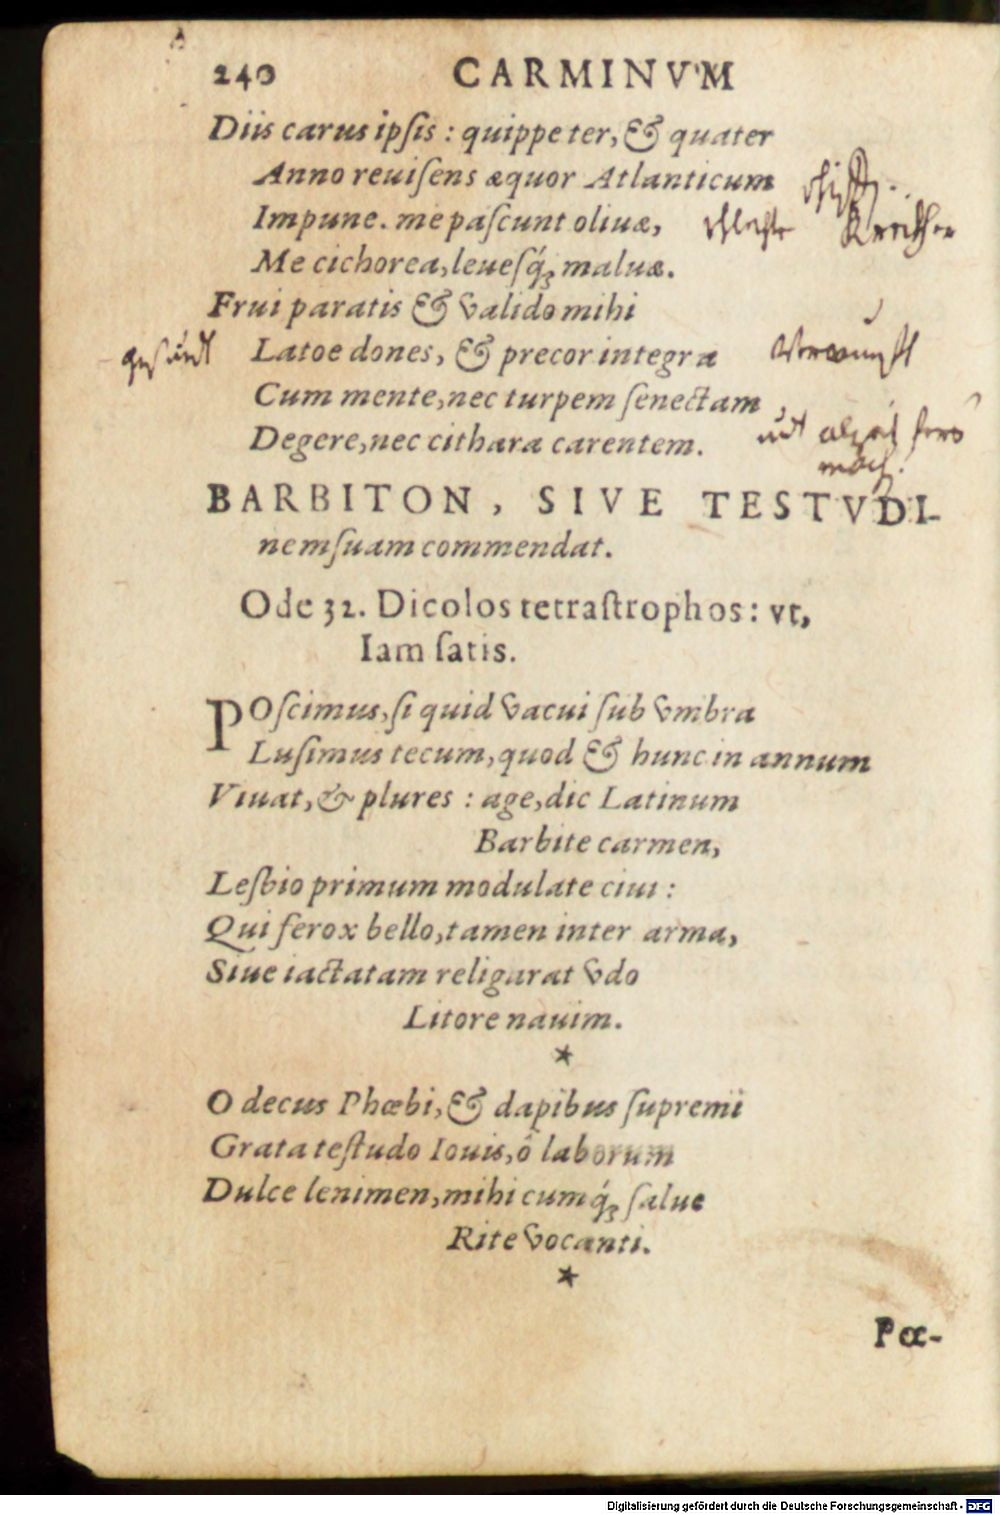 240 CARMINVM
Diis carus ipſis : quippe ter, & quater
Anno reuiſens æquor Atlanticum
Impune. me paſcunt oliuæ,
ſchlechte Kreüther
Me cichorea, leueſq́ꝫ maluæ.
Frui paratis & valido mihi
geſundt
Latoe dones, & precor integra
Vernunfft
Cum mente, nec turpem ſenectam
Degere, nec cithara carentem.
BARBITON, SIVE TESTVDI-
nem ſuam commendat.
Ode 32. Dicolos tetraſtrophos: vt,
Iam ſatis.
POſcimus, ſi quid vacui ſub vmbra
Luſimus tecum, quod & hunc in annum
Viuat, & plures : age, dic Latinum
Barbite carmen,
Leſbio primum modulate ciui :
Qui ferox bello, tamen inter arma,
Siue iactatam religarat vdo
Litore nauim.
*
O decus Phœbi, & dapibus ſupremi
Grata teſtudo Iouis, ô laborum
Dulce lenimen, mihi cumq́ꝫ ſalue
Rite vocanti.
*
Pœ-
Digitalisierung gefördert durch die Deutsche Forschungsgemeinschaft - DFG